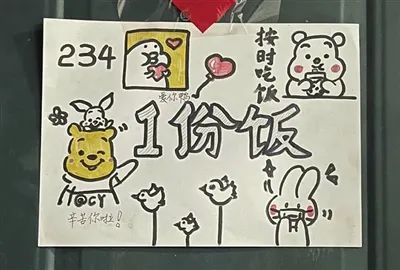 234
按时吃饭
爱你鸭
1份饭
T@CY
辛苦你啦!